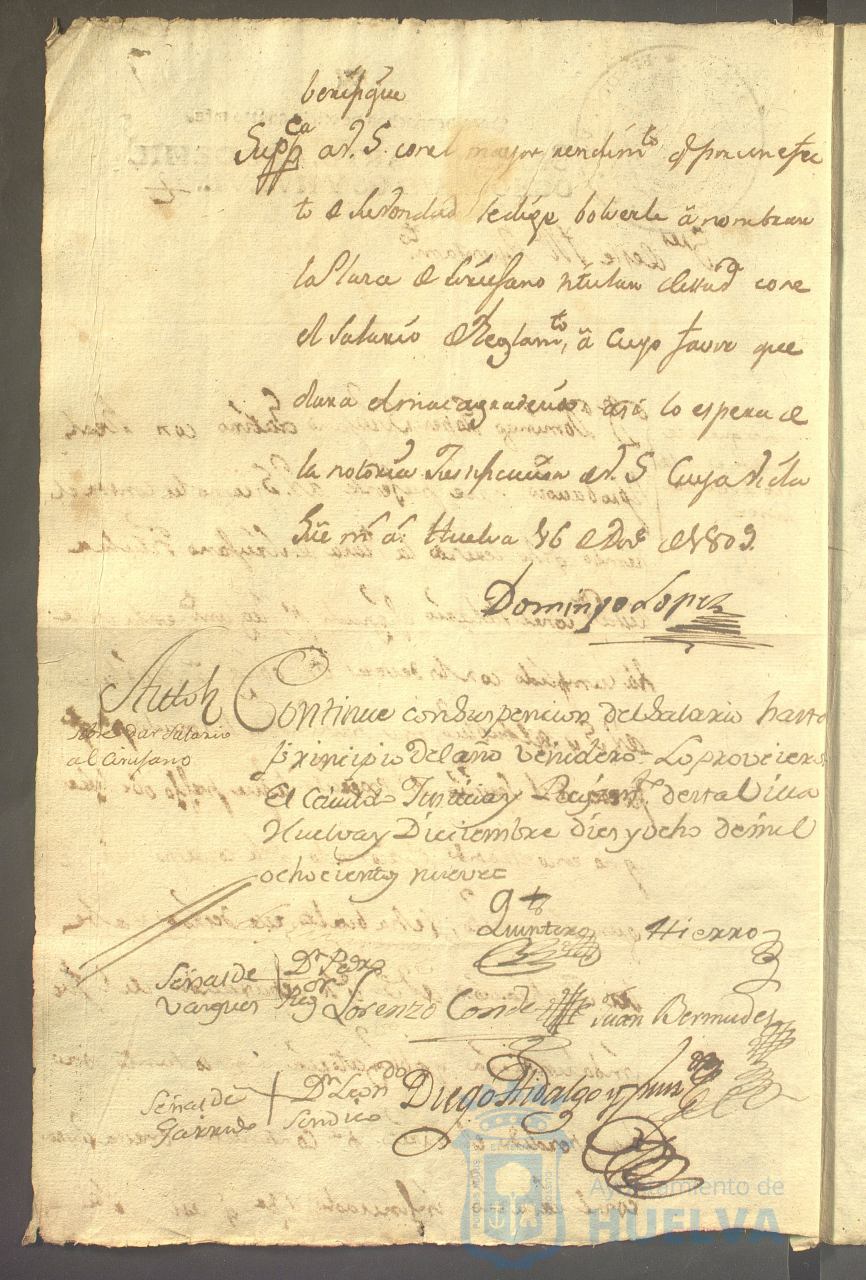 Supp.ca a V. S. con el mayor rendim.to q.e por un efec
to de su vondad se dige bolverle â nombrar
la Plaza de Cirujano titular con
el salario de Reglam.to, â cuyo favor que
dará el mas agradecido asi lo espera de
la notoria Justificacion de V. S. Cuya vida
gûe m.s a.s Huelva 16 de Dre de 1809.
Domingo Lopez
Auto
sobre dar salario
al Cirujano
Continue con suspencion del salario hasta
principio del año venidero. Lo proveieron
El Cavildo Justicia y Regim.to de esta Villa
Huelva y Diciembre dies y ocho de mil
ochocientos nueve
Quintero Hierro
Señal de
Vargues
Dn Pedro
Reg.or
Lorenzo Conde
Juan Bermudez
Señal de
Garrido
Dn Leon
Sindico
Diego Hidalgo
Ayuntamiento de
HUELVA